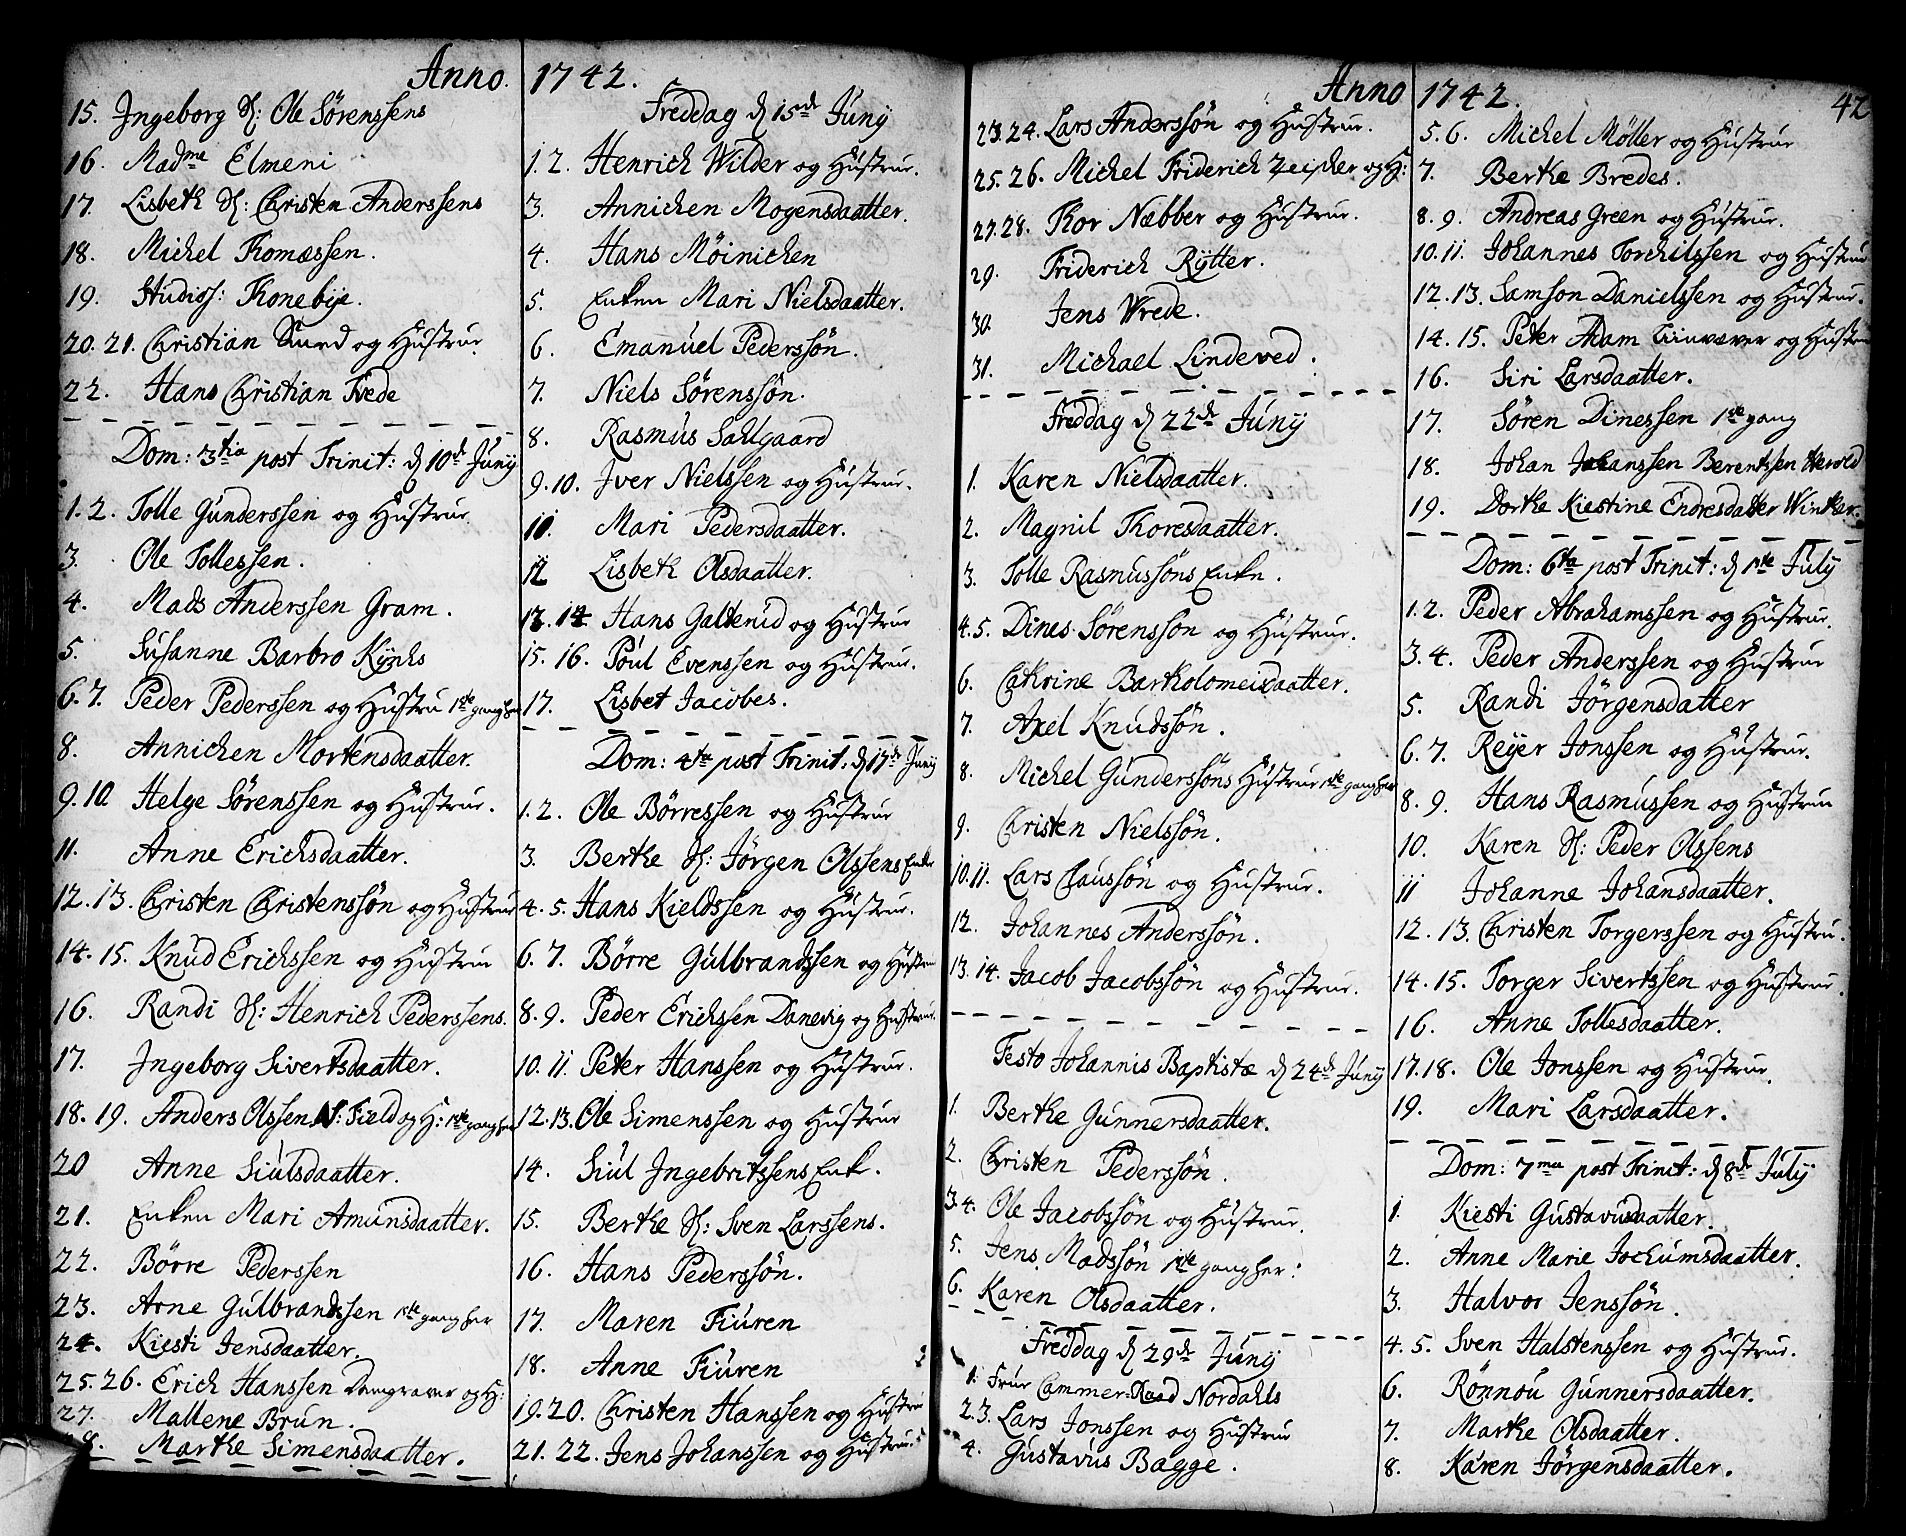 Anno 1742.
15. Ingeborg S: Ole Sørenssens
16. Madme Elmeni
17. Lisbeth S: Christen Anderssens
18. Michel Thomæssen.
19. Studios: Thonebye.
20. 21. Christian Smed og Hustrue
22. Hans Christian Frede
Dom: 3tia post Trinit: d 10de Junij
1. 2. Tolle Gunderssen og Hustrue
3. Ole Tollessen.
4. Mads Anderssen Gram.
5. Susanne Barbro Kyhs
6. 7. Peder Pederssen og Hustru 1ste gang her
8. Annichen Mortensdaatter.
9. 10 Helge Sørenssen og Hustrue.
11. Anne Erichsdaatter.
12. 13. Christen Christenssøn og Hustrue
14. 15. Knud Erichssen og Hustrue
16. Randi S: Henrich Pederssens.
17. Ingeborg Sivertsdaatter.
18. 19. Anders Olssen N: Field og H: 1ste gang her
20 Anne Siulsdaatter.
21. Enken Mari Amunsdaatter.
22. Børre Pederssen
23. Arne Gulbrandssen 1ste gang her
24. Kiesti Jensdaatter.
25. 26. Erich Hanssen Domgraver og H:
27. Mallene Brun.
28. Marthe Simensdaatter.
Freddag d 15de Junij
1. 2. Henrich Wilder og Hustrue.
3. Annichen Mogensdaatter.
4. Hans Möinichen
5. Enken Mari Nielsdaatter.
6. Emanuel Pederssøn.
7. Niels Sørenssøn.
8. Rasmus Sahlgaard
9. 10. Iver Nielssen og Hustrue.
11. Mari Pedersdaatter.
12 Lisbeth Olsdaatter.
13. 14 Hans Galterud og Hustrue
15. 16. Poul Evenssen og Hustrue.
17. Lisbet Jacobes.
Dom: 4ta post Trinit: d 17de Junij
1. 2. Ole Børressen og Hustrue
3. Berthe S: Jørgen Olssens Enke
4. 5. Hans Kieldssen og Hustrue.
6. 7. Børre Gulbrandssen og Hustrue
8. 9. Peder Erichssen Danevig og Hustrue.
10. 11. Peter Hanssen og Hustrue.
12. 13. Ole Simenssen og Hustrue
14. Siul Ingebritssens Enk.
15. Berthe S: Sven Larssens.
16. Hans Pederssøn.
17. Maren Fiuren
18. Anne Fiuren
19. 20. Christen Hanssen og Hustrue
21. 22. Jens Johanssen og Hustrue.
Anno 1742. 42
23. 24. Lars Anderssøn og Hustrue.
25. 26. Michel Friderich Zeisker og H:
27. 28. Thor Næbber og Hustrue.
29. Friderich Rytter.
30. Jens Wrede.
31. Michael Lindeved.
Freddag d 22de Junij
1. Karen Nielsdaatter.
2. Magnil Thoresdaatter.
3. Tolle Rasmussøns Enke.
4. 5. Dines Sørenssøn og Hustrue.
6. Cathrine Bartholomeisdaatter.
7. Axel Knudssøn.
8. Michel Gunderssøns Hustrue 1ste gang her
9. Christen Nielssøn.
10. 11. Lars Claussøn og Hustrue.
12. Johannes Anderssøn.
13. 14. Jacob Jacobssøn og Hustrue.
Festo Johannis Baptistæ d 24de Junij
1. Berthe Gunnersdaatter.
2. Christen Pederssøn.
3. 4. Ole Jacobssøn og Hustrue.
5. Jens Madssøn 1ste gang her:
6. Karen Olsdaatter.
Freddag d 29de Junij
1. Frue Cammer-Raad Nordahls
2. 3. Lars Jonssen og Hustrue
4. Gustavus Bagge.
5. 6. Michel Møller og Hustrue
7. Berthe Bredes.
8. 9. Andreas Green og Hustrue.
10. 11. Johannes Torchilssen og Hustrue
12. 13. Samson Danielssen og Hustrue.
14. 15. Peter Adam Liinvæver og Hustrue
16. Siri Larsdaatter.
17. Søren Dinessen 1ste gang
18. Johan Johanssen Berentssen Herold
19. Dorthe Kiestine Endresdatter Winther.
Dom: 6ta post Trinit: d 1ste July
1. 2. Peder Abrahamssen og Hustrue.
3. 4. Peder Anderssen og Hustrue
5. Randi Jörgensdatter
6. 7. Reyer Jonssen og Hustrue.
8. 9. Hans Rasmussen og Hustrue
10. Karen S: Peder Olssens
11 Johanne Johansdaatter.
12. 13. Christen Torgerssen og Hustru.
14. 15. Torger Sivertssen og Hustrue.
16. Anne Tollesdaatter.
17. 18. Ole Jonssen og Hustrue.
19. Mari Larsdaatter.
Dom: 7ma post Trinit: d 8de July
1. Kiesti Gustavusdaatter.
2. Anne Marie Jochumsdaatter.
3. Halvor Jenssøn.
4. 5. Sven Halstenssen og Hustrue.
6. Rönnou Gunnersdaatter.
7. Marthe Olsdaatter.
8. Karen Jörgensdaatter.